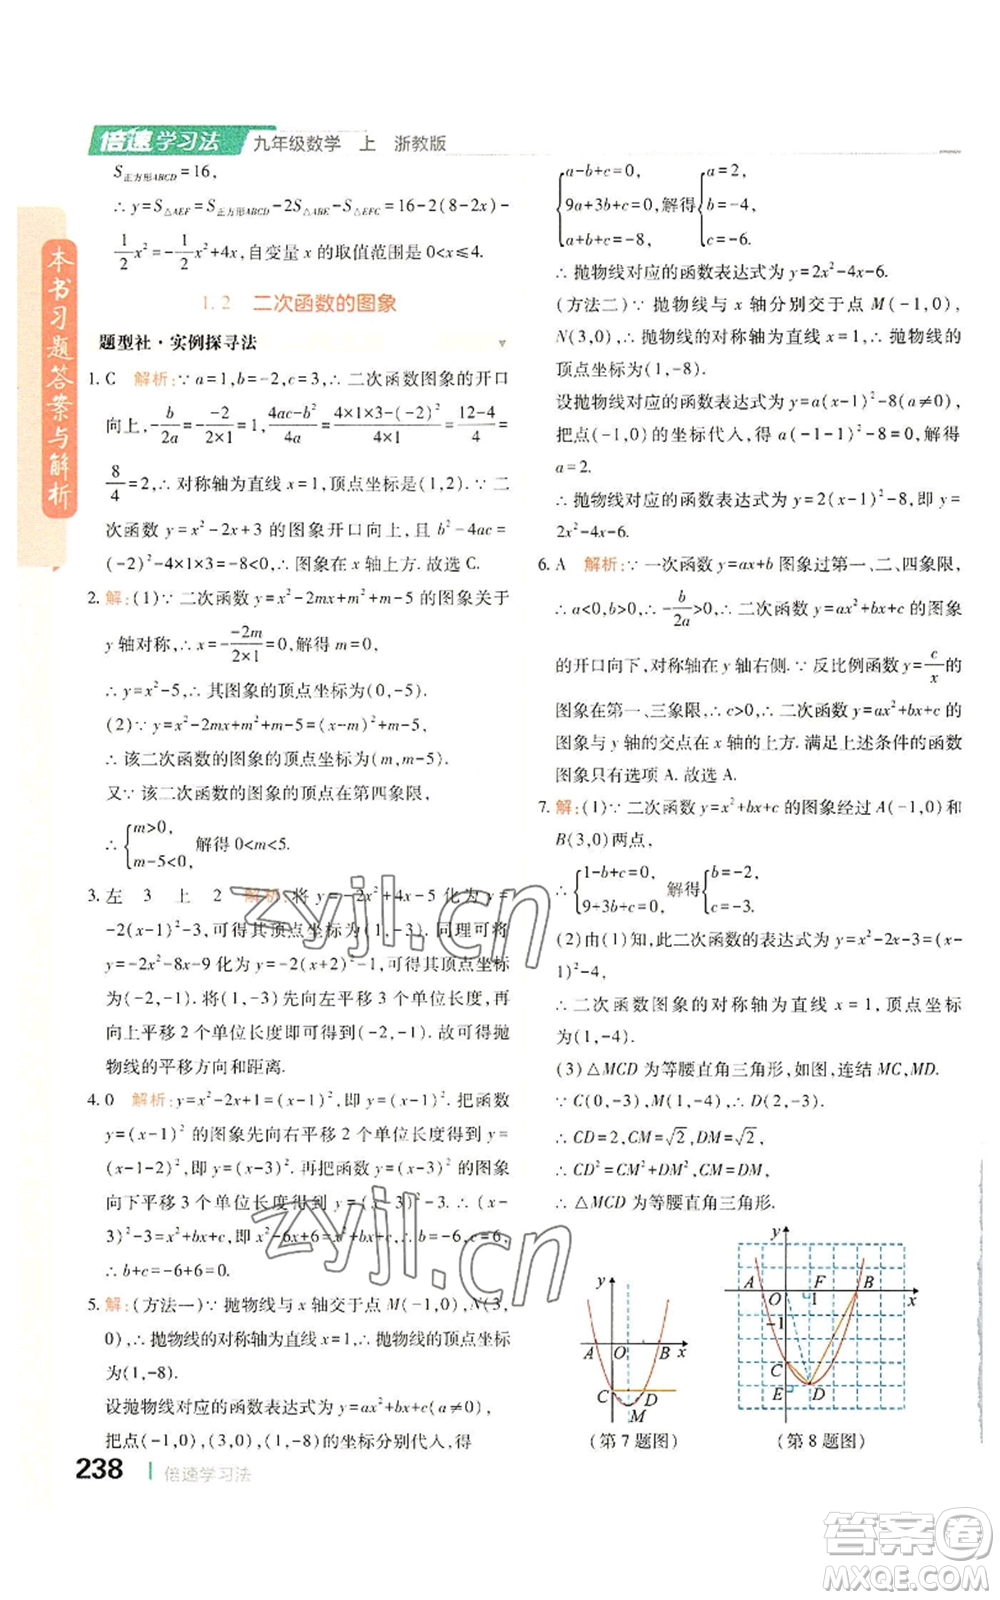 倍速学习法 九年级数学 上 浙教版
本书习题答案与解析
S正方形ABCD=16,
∴ y=S△AEF=S正方形ABCD-2S△ABE-S△EFC=16-2(8-2x)-
1/2 x²=-1/2 x²+4x,自变量 x 的取值范围是 0<x≤4.
1.2 二次函数的图象
题型社·实例探寻法
1. C 解析:∵ a=1,b=-2,c=3,∴ 二次函数图象的开口
向上,-b/2a=-(-2)/(2×1)=1,(4ac-b²)/4a=(4×1×3-(-2)²)/(4×1)=(12-4)/4=
8/4=2,∴ 对称轴为直线 x=1,顶点坐标是(1,2).∵ 二
次函数 y=x²-2x+3 的图象开口向上,且 b²-4ac=
(-2)²-4×1×3=-8<0,∴ 图象在 x 轴上方.故选 C.
2. 解:(1)∵ 二次函数 y=x²-2mx+m²+m-5 的图象关于
y 轴对称,∴ x=-(-2m)/(2×1)=0,解得 m=0,
∴ y=x²-5,其图象的顶点坐标为(0,-5).
(2)∵ y=x²-2mx+m²+m-5=(x-m)²+m-5,
∴ 该二次函数的图象的顶点坐标为(m,m-5).
又∵ 该二次函数的图象的顶点在第四象限,
∴ {m>0, m-5<0, 解得 0<m<5.
3. 左 3 上 2 解析:将 y=-2x²+4x-5 化为 y=
-2(x-1)²-3,可得其顶点坐标为(1,-3).同理可将
y=-2x²-8x-9 化为 y=-2(x+2)²-1,可得其顶点坐标
为(-2,-1).将(1,-3)先向左平移 3 个单位长度,再
向上平移 2 个单位长度即可得到(-2,-1).故可得抛
物线的平移方向和距离.
4. 0 解析:y=x²-2x+1=(x-1)²,即 y=(x-1)².把函数
y=(x-1)² 的图象先向右平移 2 个单位长度得到 y=
(x-1-2)²,即 y=(x-3)².再把函数 y=(x-3)² 的图象
向下平移 3 个单位长度得到 y=(x-3)²-3.∴ (x-
3)²-3=x²+bx+c,即 x²-6x+6=x²+bx+c,b=-6,c=6,
∴ b+c=-6+6=0.
5. 解:(方法一)∵ 抛物线与 x 轴交于点 M(-1,0),N(3,
0),∴ 抛物线的对称轴为直线 x=1,∴ 抛物线的顶点坐
标为(1,-8).
设抛物线对应的函数表达式为 y=ax²+bx+c(a≠0),
把点(-1,0),(3,0),(1,-8)的坐标分别代入,得
{a-b+c=0, 9a+3b+c=0, a+b+c=-8, 解得 {a=2, b=-4, c=-6,
∴ 抛物线对应的函数表达式为 y=2x²-4x-6.
(方法二)∵ 抛物线与 x 轴分别交于点 M(-1,0),
N(3,0),∴ 抛物线的对称轴为直线 x=1,∴ 抛物线的
顶点坐标为(1,-8).
设抛物线对应的函数表达式为 y=a(x-1)²-8(a≠0),
把点(-1,0)的坐标代入,得 a(-1-1)²-8=0,解得
a=2.
∴ 抛物线对应的函数表达式为 y=2(x-1)²-8,即 y=
2x²-4x-6.
6. A 解析:∵ 一次函数 y=ax+b 图象过第一、二、四象限,
∴ a<0,b>0,∴ -b/2a>0,∴ 二次函数 y=ax²+bx+c 的图象
的开口向下,对称轴在 y 轴右侧.∵ 反比例函数 y=c/x 的
图象在第一、三象限,∴ c>0,∴ 二次函数 y=ax²+bx+c 的
图象与 y 轴的交点在 x 轴的上方.满足上述条件的函数
图象只有选项 A.故选 A.
7. 解:(1)∵ 二次函数 y=x²+bx+c 的图象经过 A(-1,0)和
B(3,0)两点,
∴ {1-b+c=0, 9+3b+c=0, 解得 {b=-2, c=-3.
(2)由(1)知,此二次函数的表达式为 y=x²-2x-3=(x-
1)²-4,
∴ 二次函数图象的对称轴为直线 x=1,顶点坐标
为(1,-4).
(3)△MCD 为等腰直角三角形,如图,连结 MC,MD.
∵ C(0,-3),M(1,-4),D(2,-3),
∴ CD=2,CM=√2,DM=√2,
∴ CD²=CM²+DM²,CM=DM,
∴ △MCD 为等腰直角三角形.
y A O B x C D M
(第 7 题图)
y A O F 1 B x -1 C E D
(第 8 题图)
238 倍速学习法
zyjl.cn
zyjl.cn
答案卷
MXQE.COM